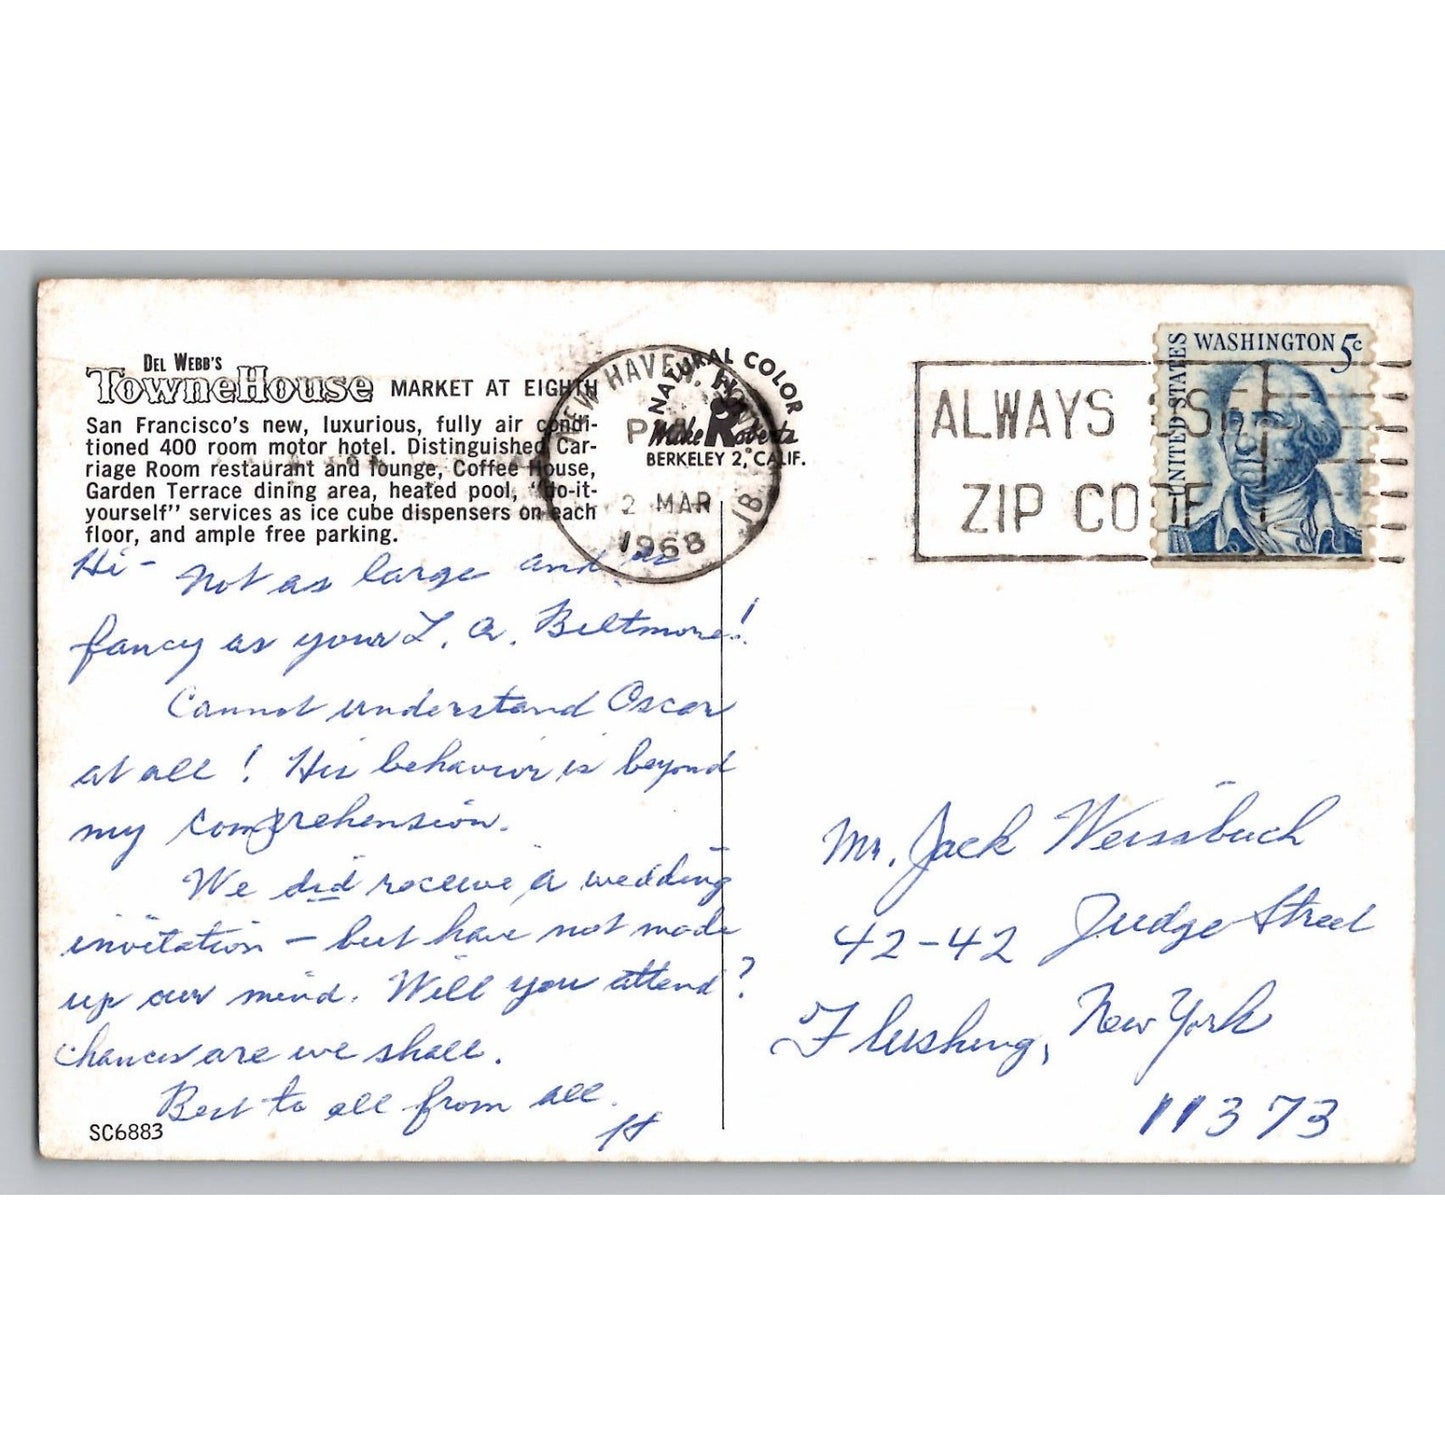 DEL WEBB'S
TowneHouse MARKET AT EIGHTH
San Francisco's new, luxurious, fully air condi-
tioned 400 room motor hotel. Distinguished Car-
riage Room restaurant and lounge, Coffee House,
Garden Terrace dining area, heated pool, "do-it-
yourself" services as ice cube dispensers on each
floor, and ample free parking.
Hi - Not as large and as
fancy as your L. A. Biltmore!
Cannot understand Oscar
at all! His behavior is beyond
my comprehension.
We did receive a wedding
invitation - but have not made
up our mind. Will you attend?
Chances are we shall.
Best to all from all.
H
SC6883
NEW HAVEN, CONN
PM
2 MAR
1968
1B
NATURAL COLOR
Mike Roberts
BERKELEY 2, CALIF.
ALWAYS USE
ZIP CODE
UNITED STATES
WASHINGTON 5c
Mr. Jack Weissbuch
42-42 Judge Street
Flushing, New York
11373